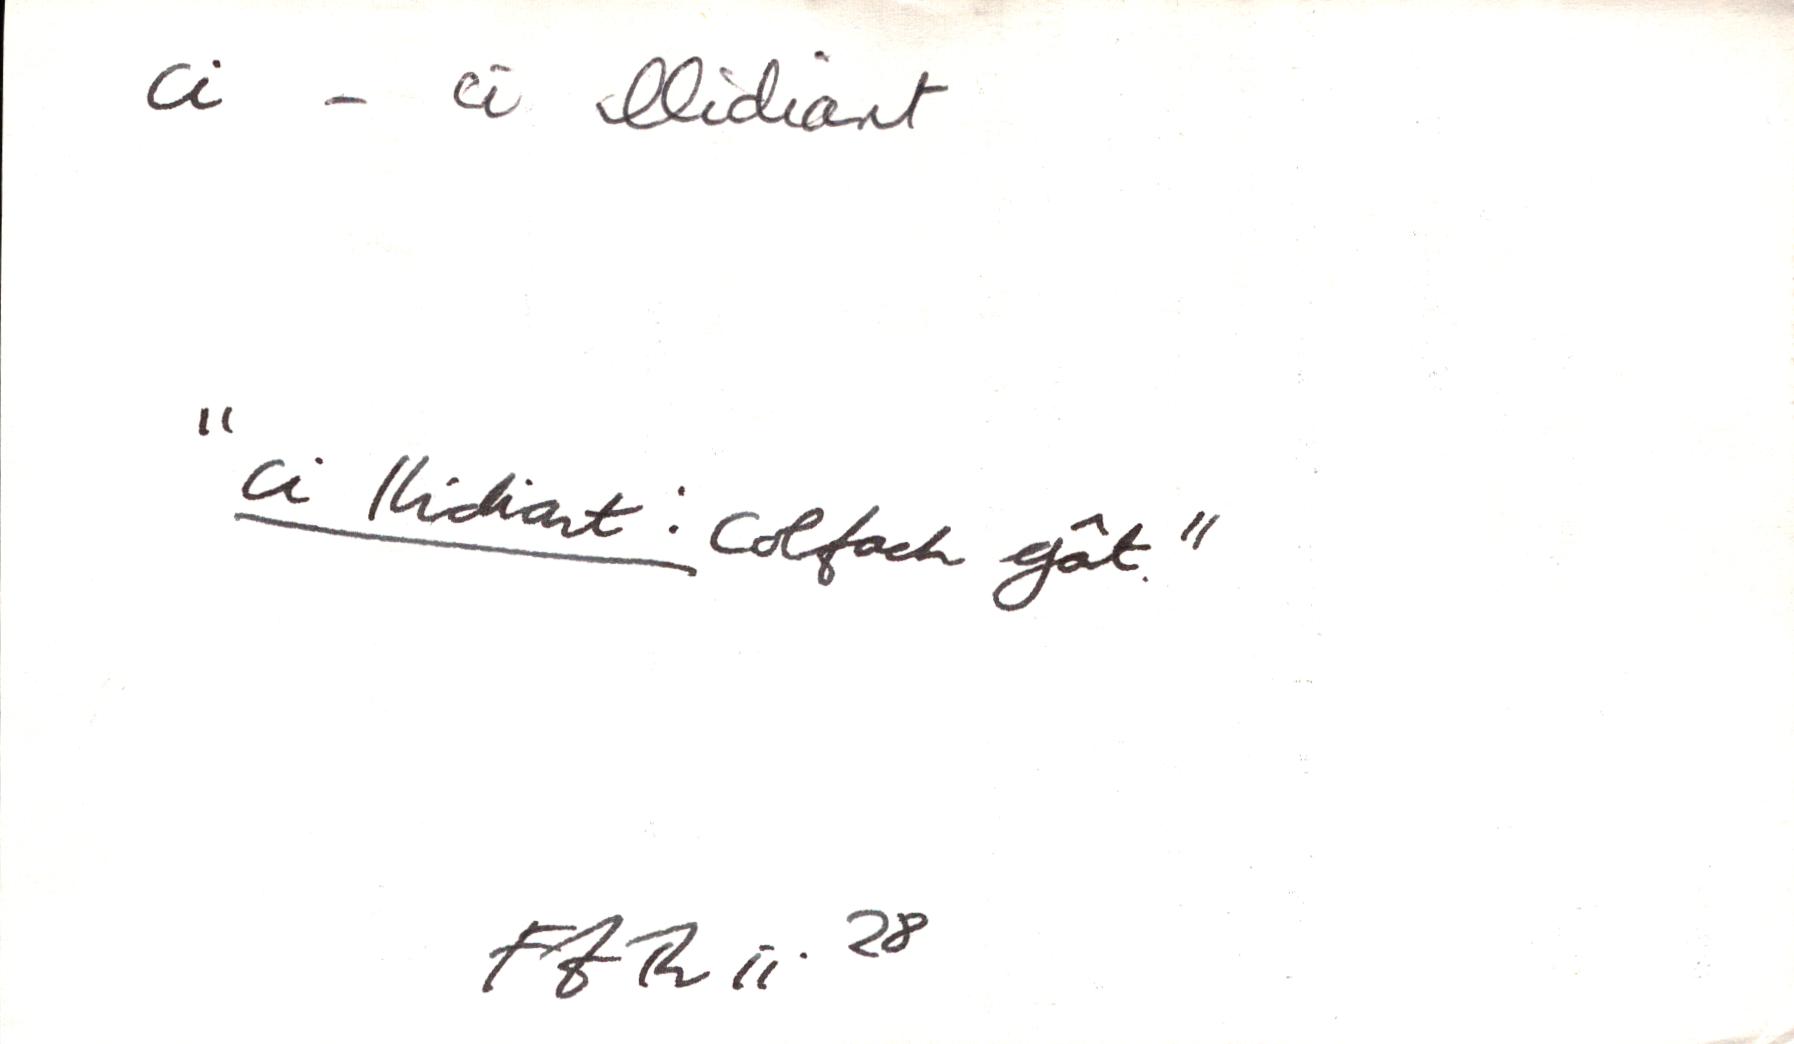 ci - ci llidiart
"ci llidiart: Colfach gât."
FfTh ii. 28